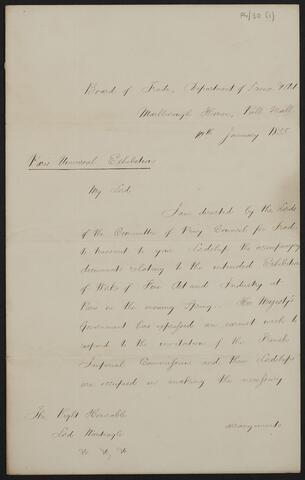 P4/30 (1)
Board of Trade, Department of Science & Art
Marlborough House, Pall Mall.
January 1855
Paris Universal Exhibition
My Lord,
I am directed by the Lords
of the Committee of Privy Council for Trade
to transmit to your Lordship the accompanying
documents relating to the intended Exhibition
of Works of Fine Art and Industry at
Paris in the ensuing Spring. Her Majesty's
Government has expressed an earnest wish to
respond to the invitation of the French
Imperial Commission and their Lordships
are occupied in making the necessary
arrangements
The Right Honorable
Lord Monteagle